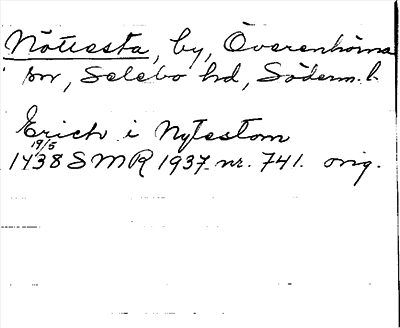 Nötesta, by, Överenhörna
sn, Selebo hd, Söderm. l.
Erich i Nytestom
19/5
1438 SMR 1937 nr. 741. orig.